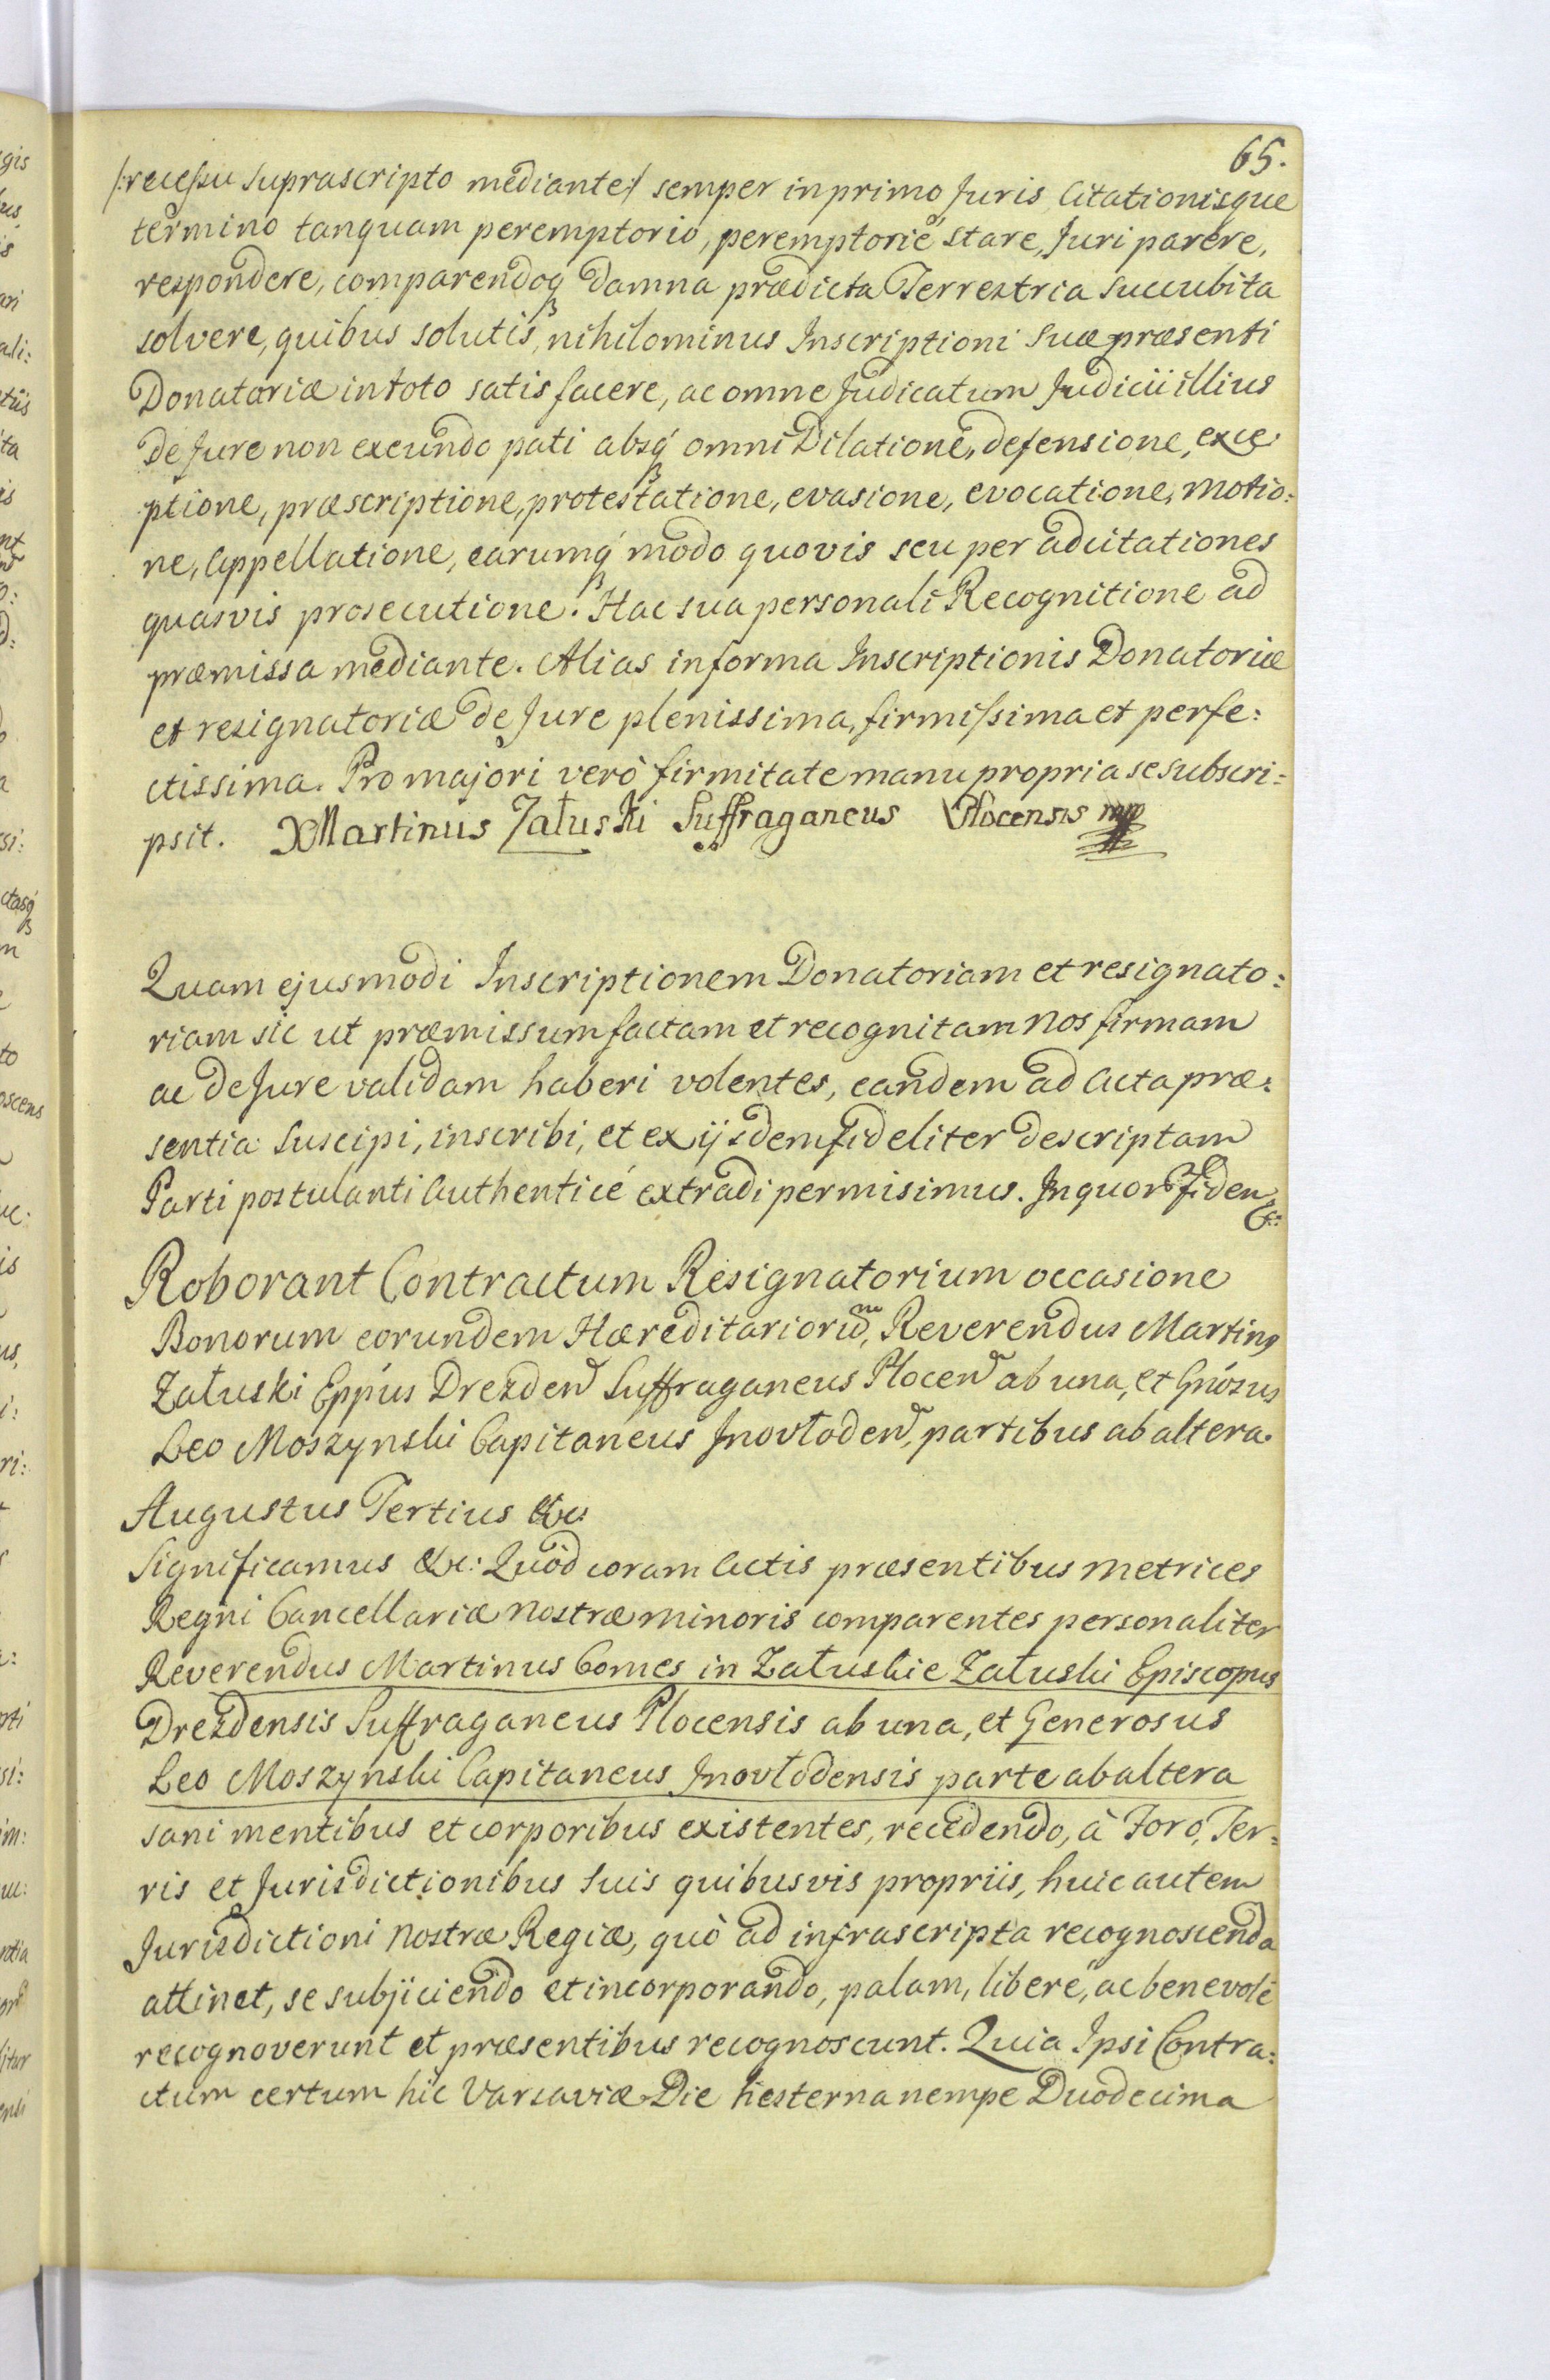 65.
/:recessu suprascripto mediante:/ semper in primo Juris, Citationisque
termino tanquam peremptorio, peremptorie stare, Juri parere,
respondere, comparendoq̃ damna prædicta Terrestria succubita
solvere, quibus solutis, nihilominus Inscriptioni suæ præsenti
Donatoriæ in toto satisfacere, ac omne Judicatum Judicii illius
de Jure non exeundo pati absq́ omni Dilatione, defensione, exce
ptione, præscriptione, protestatione, evasione, evocatione, motio:
ne, appellatione, earumq́ modo quovis seu per adcitationes
quasvis prosecutione. Hac sua personali Recognitione ad
præmissa mediante. Alias in forma Inscriptionis Donatoriæ
et resignatoriæ de Jure plenissima, firmissima et perfe:
ctissima. Pro majori verò firmitate manu propria se subscri:
psit. XMartinus Załuski Suffraganeus Plocensis mp
Quam ejusmodi Inscriptionem Donatoriam et resignato:
riam sic ut præmissum factam et recognitam nos firmam
ac de Jure validam haberi volentes, eandem ad Acta præ:
sentia suscipi, inscribi, et ex ijsdem fideliter descriptam
Parti postulanti authenticé extradi permisimus. In quor̃ fidem
&:
Roborant Contractum Resignatorium occasione
Bonorum eorundem Hæreditariorũ, Reverendus Martinꝰ
Załuski Eppus Drezdeñ Suffraganeus Płoceñ ab una, et Gnósus
Leo Moszynski Capitaneus Inovłodeñ, partibus ab altera.
Augustus Tertius &c:
Significamus &c: Quód coram Actis præsentibus Metrices
Regni Cancellariæ nostræ minoris comparentes personaliter
Reverendus Martinus Comes in Załuskie Załuski Episcopus
Drezdensis Suffraganeus Płocensis ab una, et Generosus
Leo Moszynski Capitaneus Inovłodensis parte ab altera
sani mentibus et corporibus existentes, recedendo, à Foro, Ter:
ris et Jurisdictionibus suis quibusvis propriis, huic autem
Jurisdictioni nostræ Regiæ, quò ad infrascripta recognoscenda
attinet, se subjiciendo et incorporando, palam, libere, ac benevolé
recognoverunt et præsentibus recognoscunt. Quia Ipsi Contra:
ctum certum hic Varsaviæ Die hesterna nempe Duodecima